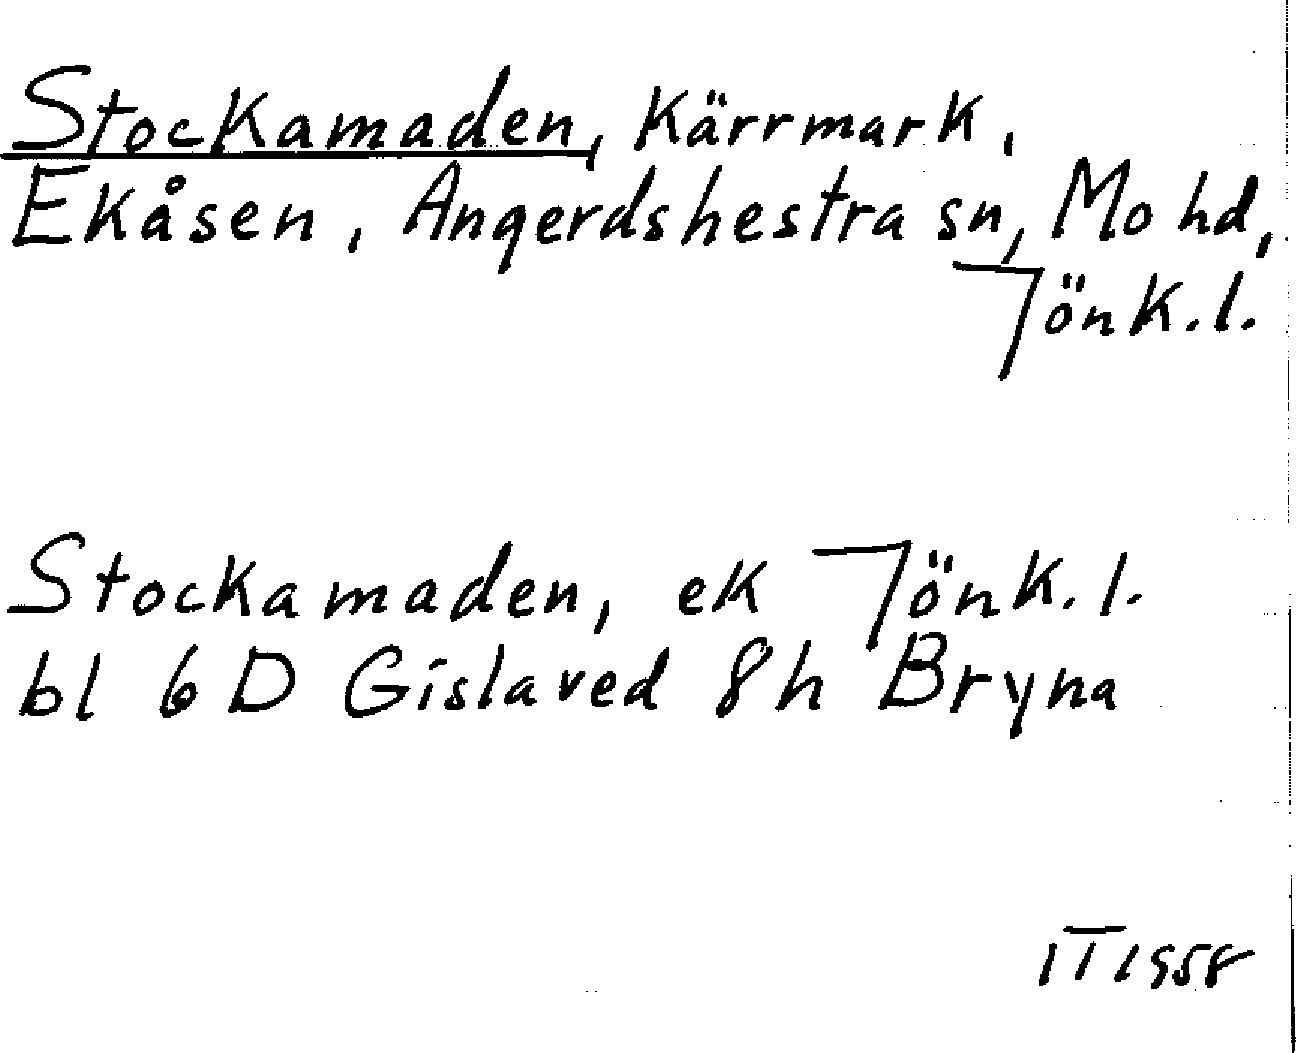 Stockamaden, Kärrmark,
Ekåsen, Angerdshestra sn, Mo hd,
Jönk.l.
Stockamaden, ek Jönk.l.
bl 6 D Gislaved 8h Bryna
IT 1958